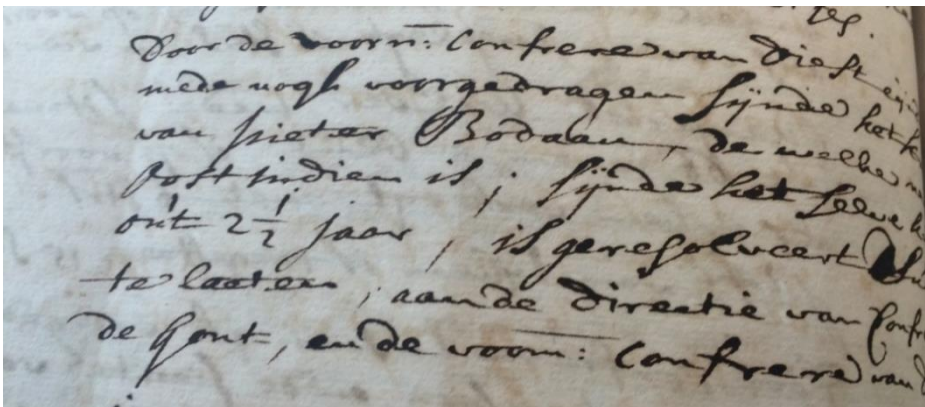 Door de voorn: Confrere van Diest
mede nogh voorgedragen sijnde het
van Pieter Bodaan, de welke
Oost indien is; sijnde het selve
out 2 1/2 jaar, is geresolveert
te laaten, aan de directie van
de Gont, en de voorn: Confrere van